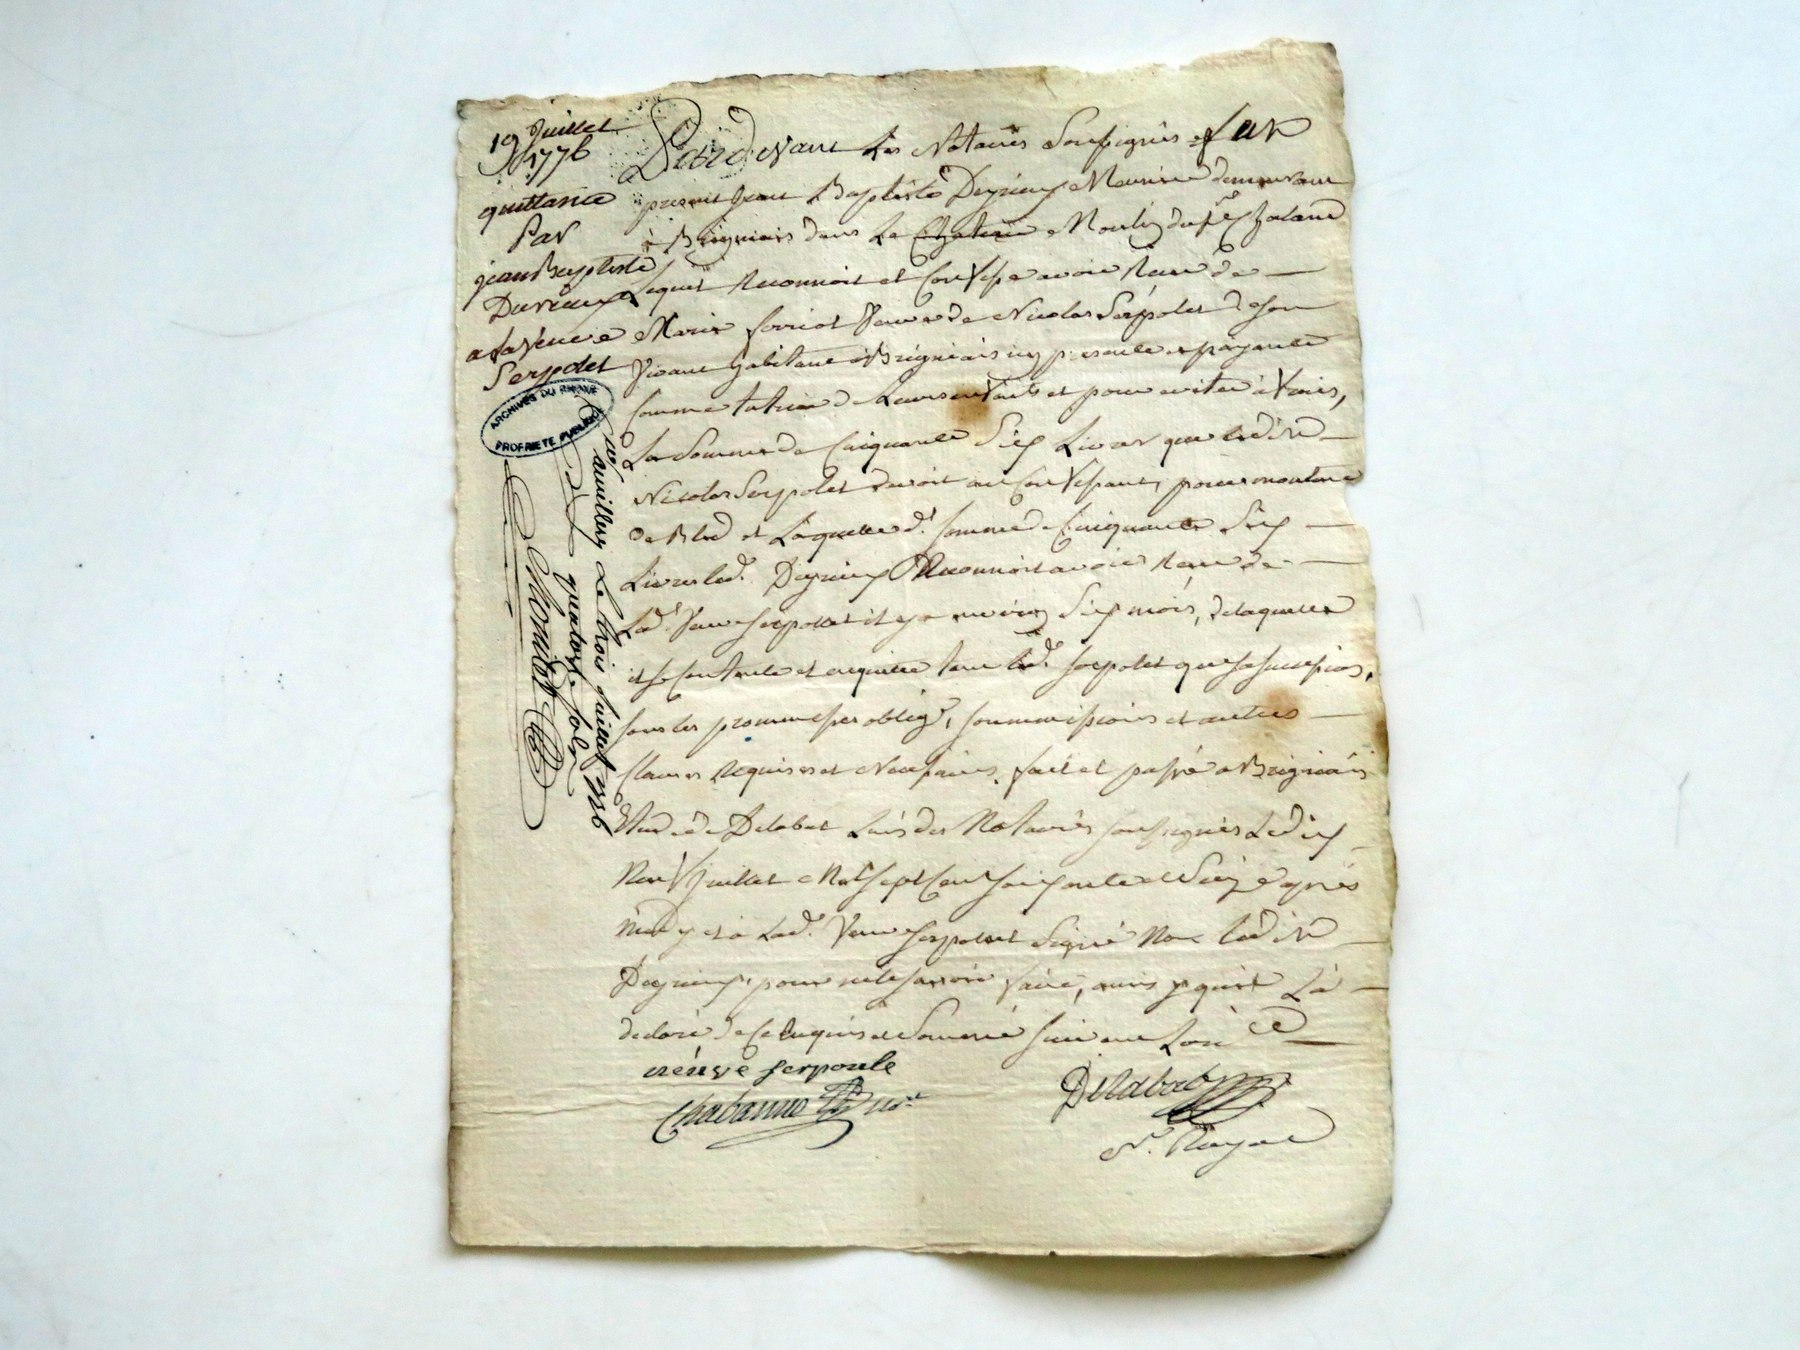 19 Juillet
1776
quittance
Par
jean Baptiste
Duvieux
a la veuve
Serpolet
ARCHIVES DU RHÔNE
PROPRIETE PUBLIQUE
Pardevant Les Notaires Soussignés fut
present Jean Baptiste Meunier demeurant
à Brignais dans Le Moulin du
Lequel Reconnoit et Confesse avoir Recu de
Marie Veuve de Nicolas Serpolet de Son
Vivant habitant à Brignais icy presente et payante
Comme tutrice de Leurs enfants et pour eviter à frais,
La Somme de Cinquante Six Livres que ledit
Nicolas Serpolet devoit au Confessant, pour mouture
de Bled et Laquelle d. somme de Cinquante Six
Livres led. Reconnoit avoir Recu de
Lad. Veuve Serpolet il y a environ Six mois, de laquelle
il se Contente et en quitte tant led. Serpolet que sa succession,
sous les promesses oblig. soummissions et autres
Clauses Requises et Necessaires. fait et passé a Brignais
Etude de Delabat L'un des Notaires soussignés Le dix
Neuf Juillet Mil sept Cent soixante et Seize après
midy et a Lad. Veuve Serpolet Signé Non ledit
pour ne le savoir faire, ainsi qu'il L'a
declaré de Ce Enquis et Sommé suivant Loi
veuve serpoule
Chabanne
Delabat
Vauillery Le trois Juillet 1776
quatorze sols